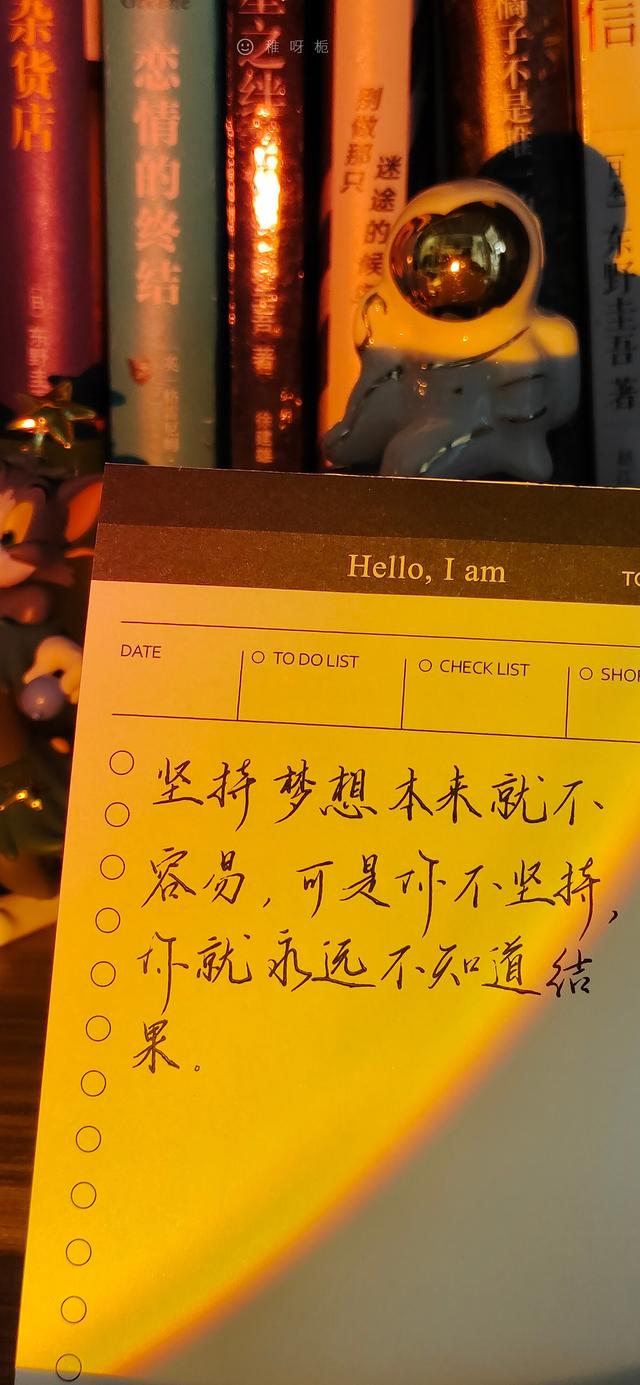 杂货店
恋情的终结
星之绊
稚呀栀
别做那只
迷途的候
橘子不是唯一
信
东野圭吾 著
Hello, I am
DATE
TO DO LIST
CHECK LIST
坚持梦想本来就不
容易,可是你不坚持,
你就永远不知道结
果。